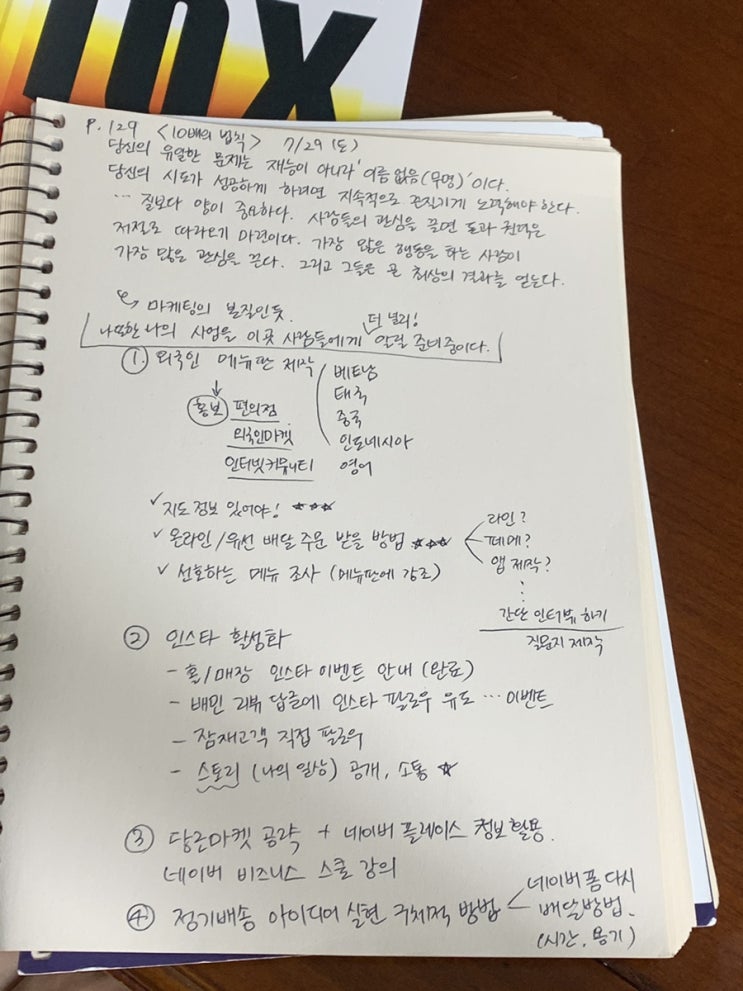 10X
P. 129 <10배의 법칙> 7/29 (토)
당신의 유일한 문제는 재능이 아니라 '이름 없음(무명)'이다.
당신의 시도가 성공하게 하려면 지속적으로 끈질기게 노력해야 한다.
… 질보다 양이 중요하다. 사람들의 관심을 끌면 돈과 권력은
저절로 따라오기 마련이다. 가장 많은 행동을 하는 사람이
가장 많은 관심을 끈다. 그리고 그들은 곧 최상의 결과를 얻는다.
마케팅의 본질인듯.
더 널리!
나또한 나의 사업을 이곳 사람들에게 알릴 준비중이다.
① 외국인 메뉴판 제작
베트남
태국
중국
인도네시아
영어
홍보 편의점
외국인마켓
인터넷커뮤니티
✓ 지도 정보 있어야! ☆☆☆
✓ 온라인/유선 배달 주문 받을 방법 ☆☆☆
라인?
페메?
앱 제작?
⋮
간단 인터뷰 하기
질문지 제작
✓ 선호하는 메뉴 조사 (메뉴판에 강조)
② 인스타 활성화
- 홀/매장 인스타 이벤트 안내 (완료)
- 배민 리뷰 답글에 인스타 팔로우 유도 … 이벤트
- 잠재고객 직접 팔로우
- 스토리 (나의 일상) 공개, 소통 ☆
③ 당근마켓 공략 + 네이버 플레이스 정보 활용.
네이버 비즈니스 스쿨 강의
④ 정기배송 아이디어 실현 구체적 방법
네이버 폼 다시
배달방법.
(시간, 용기)